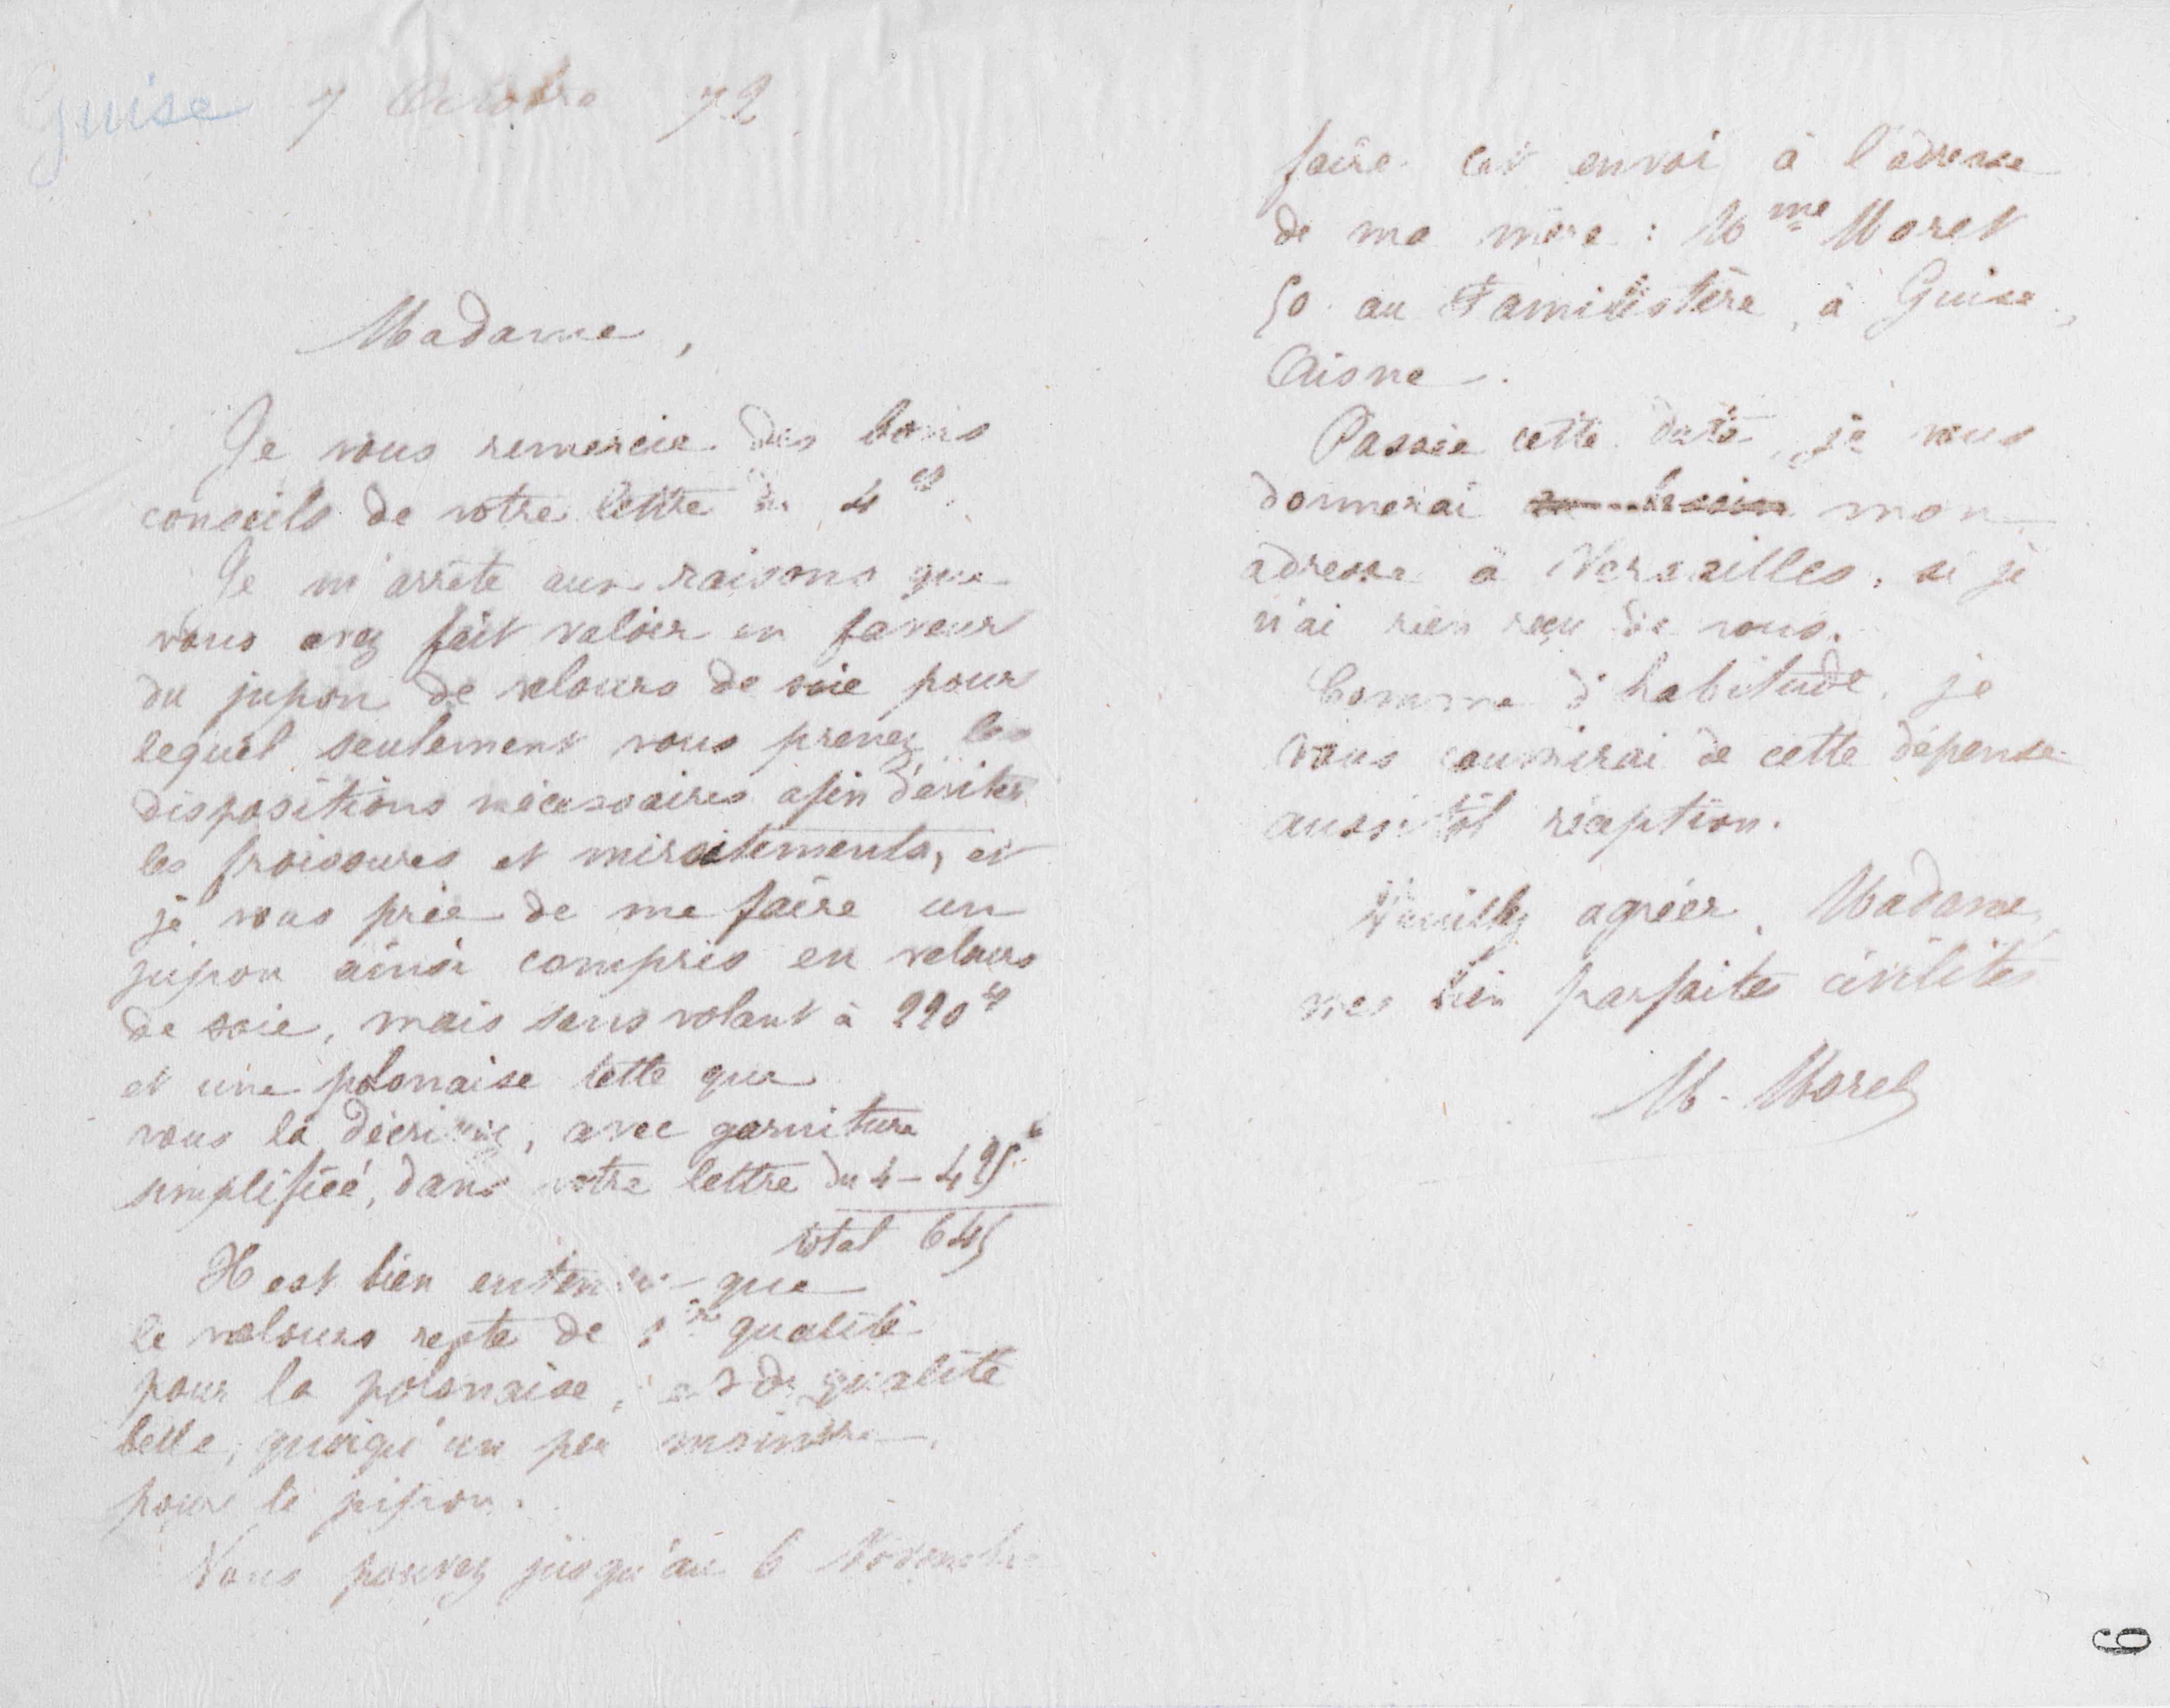 Guise 7 Octobre 72
Madame,
Je vous remercie des bons
conseils de votre lettre du 4 ct.
Je m'arrête aux raisons que
vous avez fait valoir en faveur
du jupon de velours de soie pour
lequel seulement vous prenez les
dispositions nécessaires afin d'éviter
les froissures et miroitements, et
je vous prie de me faire un
jupon ainsi compris en velours
de soie, mais sans volant à 220
et une polonaise telle que
vous la décrivez, avec garniture
simplifiée, dans votre lettre du 4 - 425
total 645
Il est bien entendu que
le velours reste de 1re qualité
pour la polonaise, et de qualité
belle, quoiqu'un peu moindre,
pour le jupon.
Vous pouvez jusqu'au 6 Novembre
faire cet envoi à l'adresse
de ma mère : Mme Moret
50 au Familistère, à Guise,
Aisne.
Passée cette date, je vous
donnerai mon
adresse à Versailles, si je
n'ai rien reçu de vous.
Comme d'habitude, je
vous couvrirai de cette dépense
aussitôt réception.
Veuillez agréer, Madame,
mes bien parfaites civilités
M. Moret
6